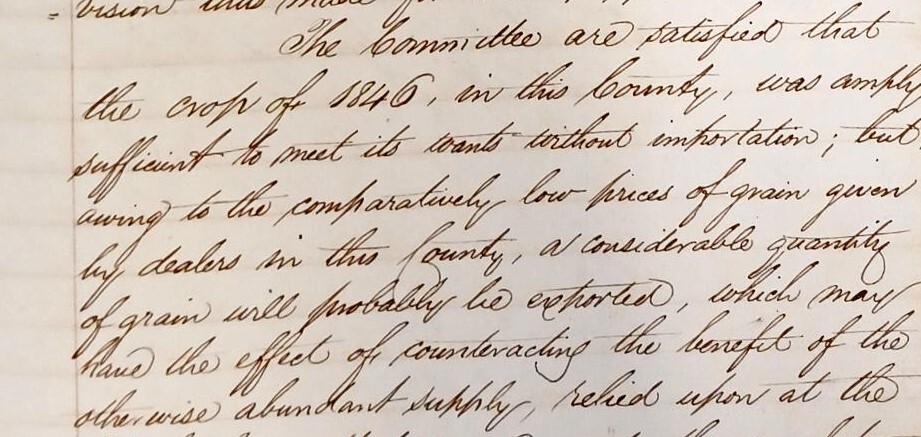 vision was made for
The Committee are satisfied that
the crop of 1846, in this County, was amply
sufficient to meet its wants without importation; but
owing to the comparatively low prices of grain given
by dealers in this County, a considerable quantity
of grain will probably be exported, which may
have the effect of counteracting the benefit of the
otherwise abundant supply, relied upon at the